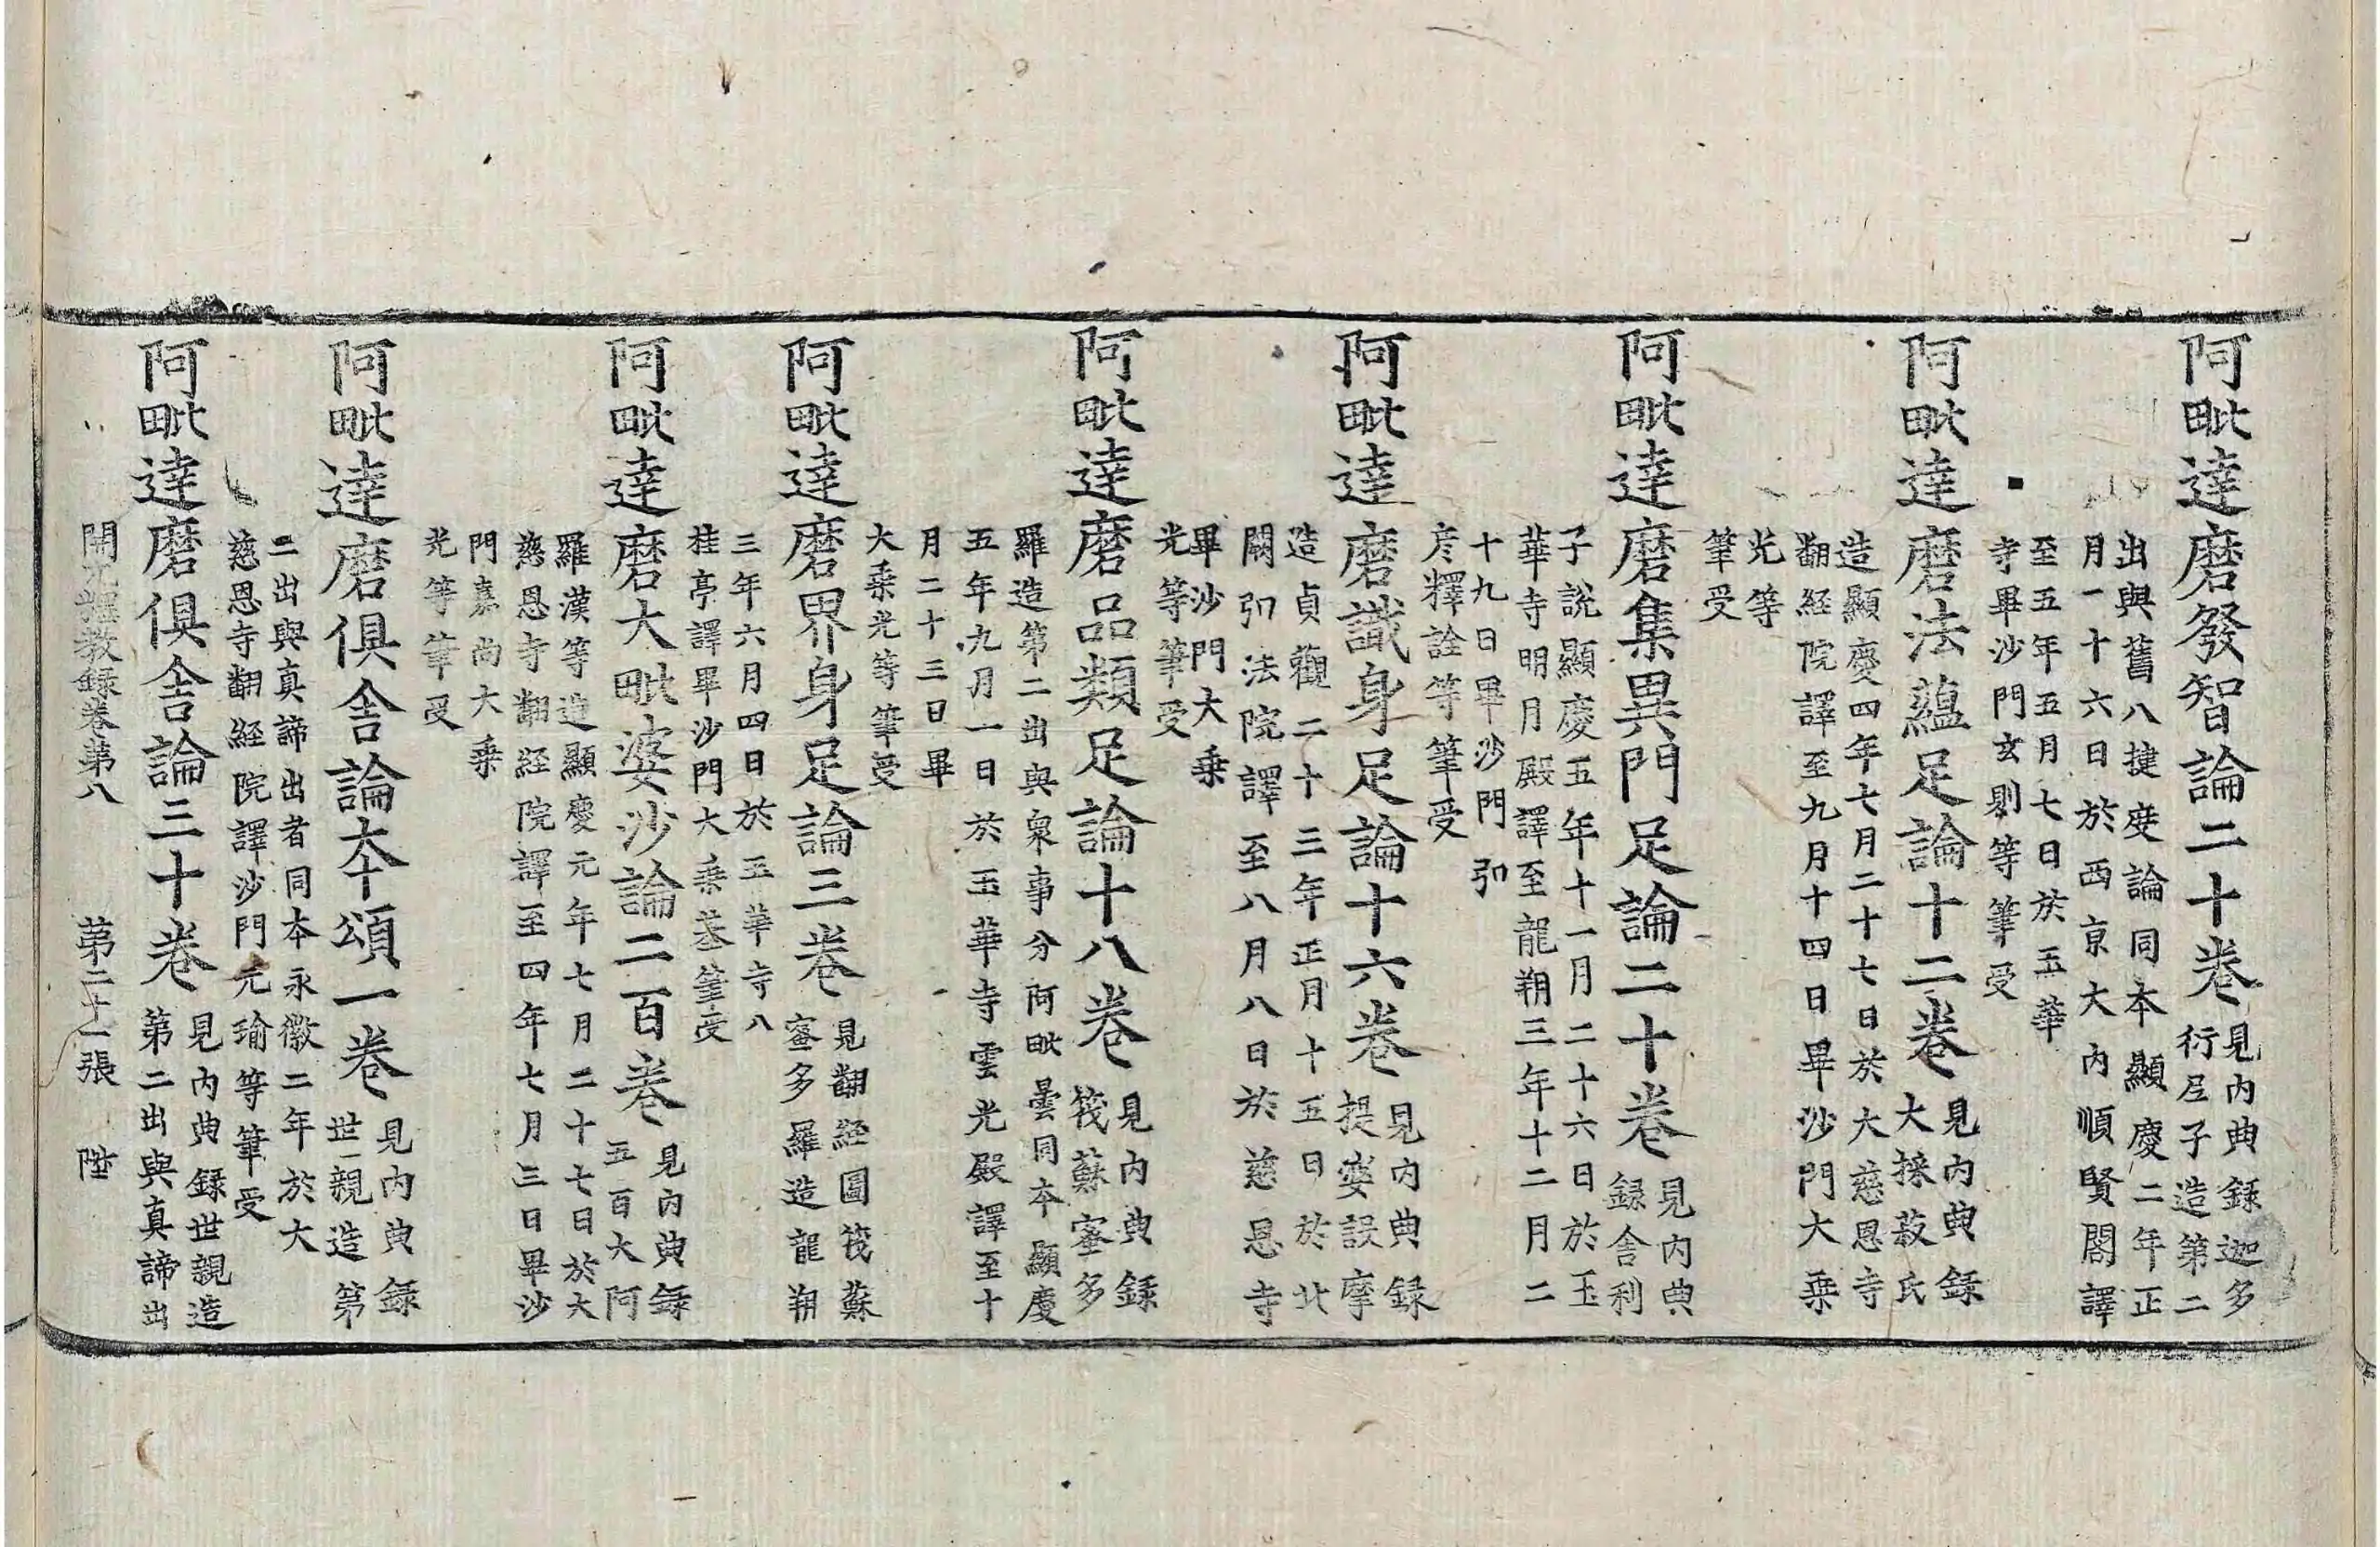 阿毗達磨發智論二十卷見内典録迦多
衍尼子造第二
出與舊八揵度論同本顯慶二年正
月一十六日於西京大内順賢閣譯
至五年五月七日於玉華
寺畢沙門玄則等筆受
阿毗達磨法蘊足論十二卷見内典録
大採菽氏
造顯慶四年七月二十七日於大慈恩寺
翻経院譯至九月十四日畢沙門大乗
光等
筆受
阿毗達磨集異門足論二十卷見内典
録舍利
子說顯慶五年十一月二十六日於玉
華寺明月殿譯至龍朔三年十二月二
十九日畢沙門弘
彦釋詮等筆受
阿毗達磨識身足論十六卷見内典録
提婆設摩
造貞觀二十三年正月十五日於北
闕弘法院譯至八月八日於慈恩寺
畢沙門大乗
光等筆受
阿毗達磨品類足論十八卷見内典録
筏蘇蜜多
羅造第二出與衆事分阿毗曇同本顯慶
五年九月一日於玉華寺雲光殿譯至十
月二十三日畢
大乗光等筆受
阿毗達磨界身足論三卷見翻經圖筏蘇
蜜多羅造龍朔
三年六月四日於玉華寺八
桂亭譯畢沙門大乗基筆受
阿毗達磨大毗婆沙論二百卷見内典録
五百大阿
羅漢等造顯慶元年七月二十七日於大
慈恩寺翻経院譯至四年七月三日畢沙
門嘉尚大乗
光等筆受
阿毗達磨俱舍論本頌一卷見内典録
世親造第
二出與真諦出者同本永徽二年於大
慈恩寺翻経院譯沙門元瑜等筆受
阿毗達磨俱舍論三十卷見内典録世親造
第二出與真諦出
開元釋教録卷第八　第二十一張　陞